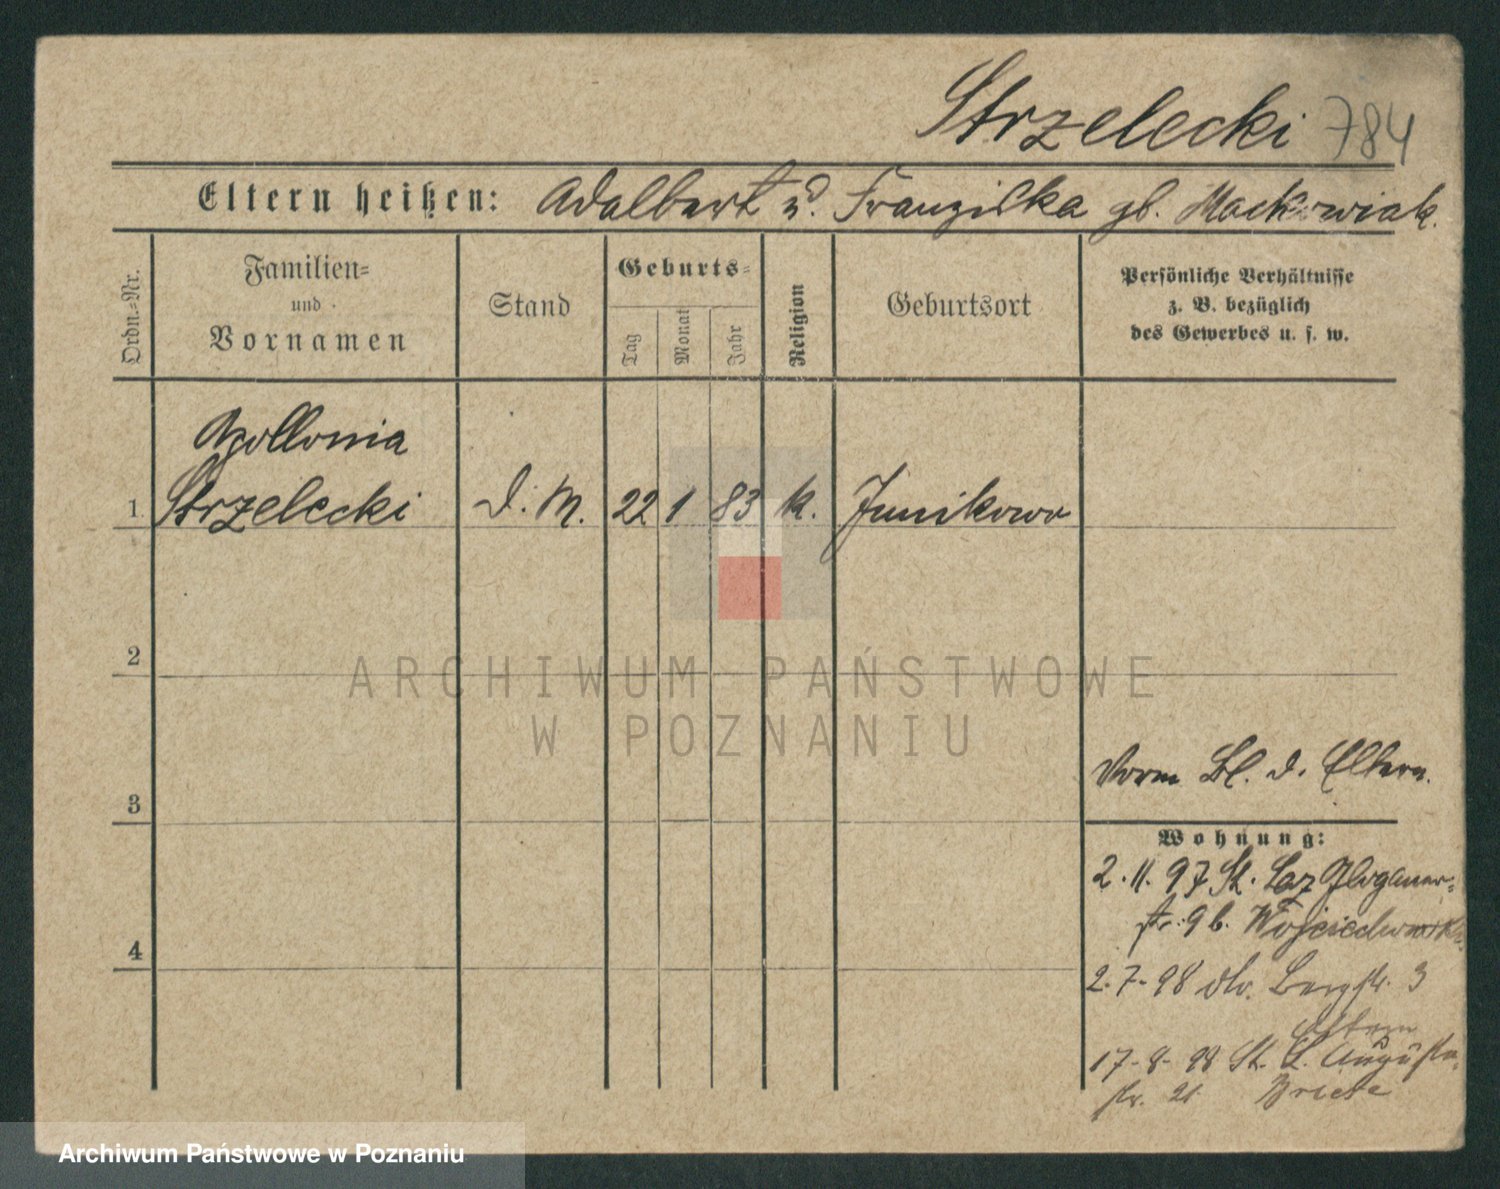 Strzelecki 784
Eltern heißen: Adalbert u. Franziska gb. Mackowiak.
Ordn.-Nr.
Familien-
und
Vornamen
Stand
Geburts-
Tag
Monat
Jahr
Religion
Geburtsort
Persönliche Verhältnisse
z. B. bezüglich
des Gewerbes u. s. w.
Apollonia
1. Strzelecki d. M. 22 1 83 k. Junikowo
2
ARCHIWUM PAŃSTWOWE
W POZNANIU
Vorm Bl. d. Eltern.
3
Wohnung:
2. 11. 97 St. Laz Glogauer-
str. 9 b.
4
2-7-98 do. Bergstr. 3
Eltern
17-8-98 St. L. Augusta
str. 21
Archiwum Państwowe w Poznaniu